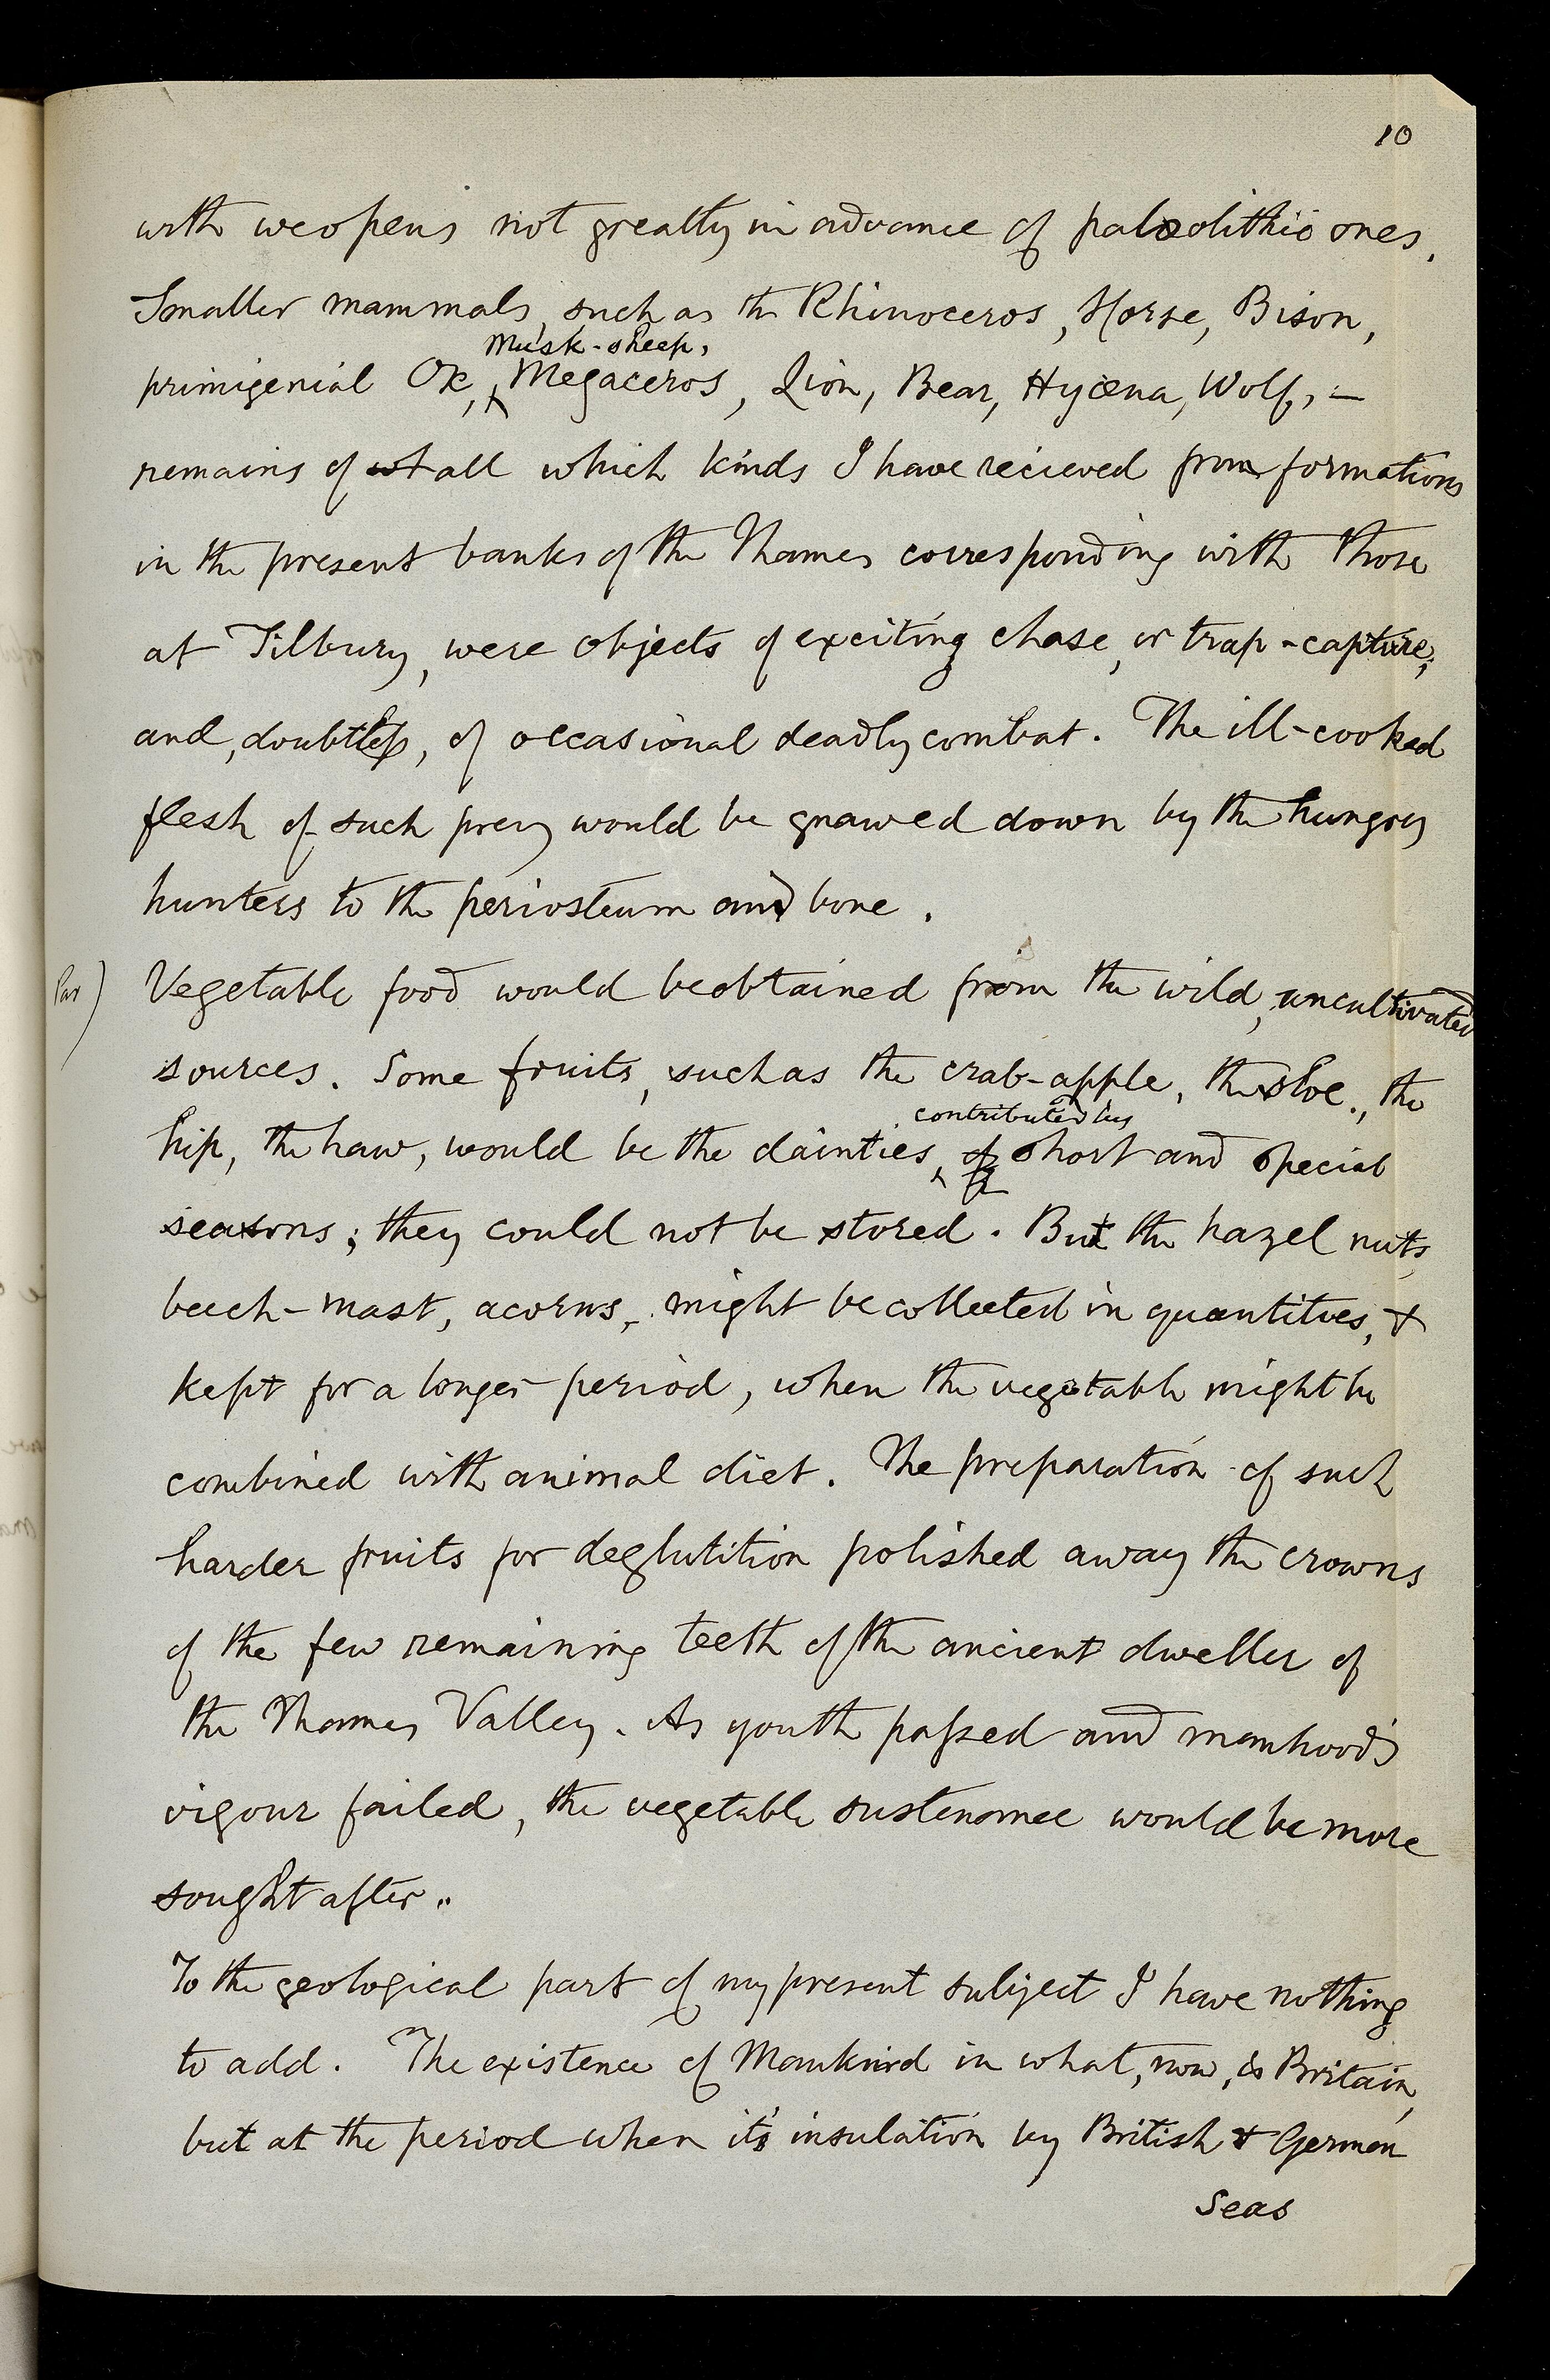 10
with weopens not greatly in advance of palæolithic ones.
Smaller mammals, such as the Rhinoceros, Horse, Bison,
Musk-sheep,
primigenial Ox, Megaceros, Lion, Bear, Hyæna, Wolf, —
remains of all which kinds I have recieved from formations
in the present banks of the Thames corresponding with those
at Tilbury, were objects of exciting chase, or trap-capture,
and, doubtless, of occasional deadly combat. The ill-cooked
flesh of such prey would be gnawed down by the hungry
hunters to the periosteum and bone.
Par) Vegetable food would be obtained from the wild, uncultivated
sources. Some fruits, such as the crab-apple, the sloe, the
contributed by
hip, the haw, would be the dainties, of short and special
seasons; they could not be stored. But the hazel nuts,
beech-mast, acorns, might be collected in quantities, &
kept for a longer period, when the vegetable might be
combined with animal diet. The preparation of such
harder fruits for deglutition polished away the crowns
of the few remaining teeth of the ancient dweller of
the Thames Valley. As youth passed and manhood's
vigour failed, the vegetable sustenance would be more
sought after.
To the geological part of my present subject I have nothing
to add. The existence of Mankind in what, now, is Britain,
but at the period when it's insulation by British & German
seas